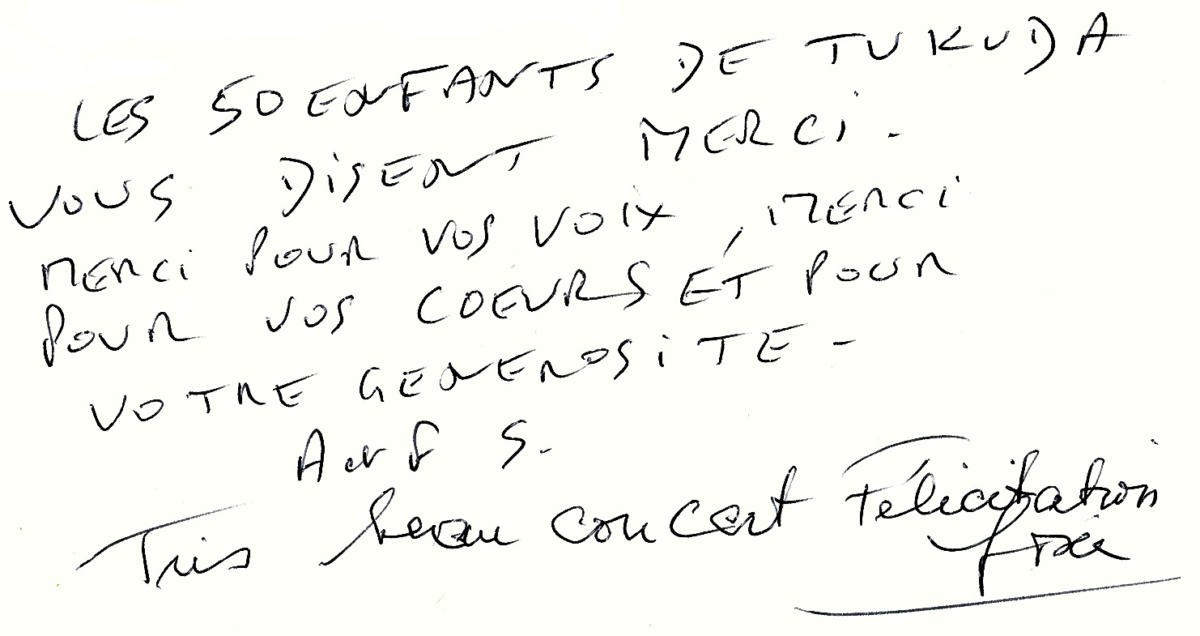 LES 50 ENFANTS DE TUKUDA
VOUS DISENT MERCI.
MERCI POUR VOS VOIX, MERCI
POUR VOS COEURS ET POUR
VOTRE GENEROSITE -
S.
Très beau concert Félicitation